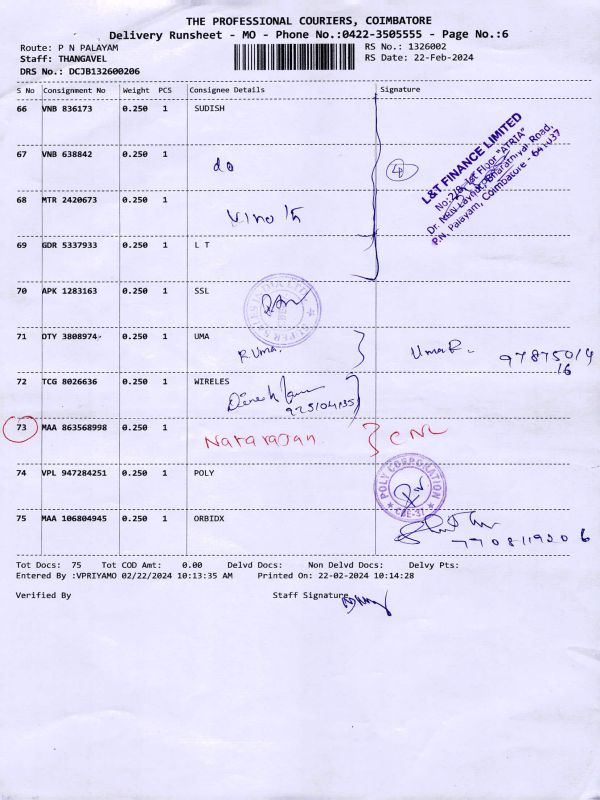 THE PROFESSIONAL COURIERS, COIMBATORE
Delivery Runsheet - MO - Phone No.:0422-3505555 - Page No.:6
Route: P N PALAYAM
RS No.: 1326002
Staff: THANGAVEL
RS Date: 22-Feb-2024
DRS No.: DCJB132600206
S No Consignment No Weight PCS Consignee Details Signature
66 VNB 836173 0.250 1 SUDISH
67 VNB 638842 0.250 1
do
L&T FINANCE LIMITED
"ATRIA"
P.N. Palayam, Coimbatore - 641037
68 MTR 2420673 0.250 1
69 GDR 5337933 0.250 1 L T
70 APK 1283163 0.250 1 SSL
71 DTY 3808974 0.250 1 UMA
R.Uma. Uma R.
72 TCG 8026636 0.250 1 WIRELES
73 MAA 863568998 0.250 1
Natarajan
74 VPL 947284251 0.250 1 POLY
POLY CORPORATION
CBE-37
75 MAA 106804945 0.250 1 ORBIDX
Tot Docs: 75 Tot COD Amt: 0.00 Delvd Docs: Non Delvd Docs: Delvy Pts:
Entered By :VPRIYAMO 02/22/2024 10:13:35 AM Printed On: 22-02-2024 10:14:28
Verified By Staff Signature